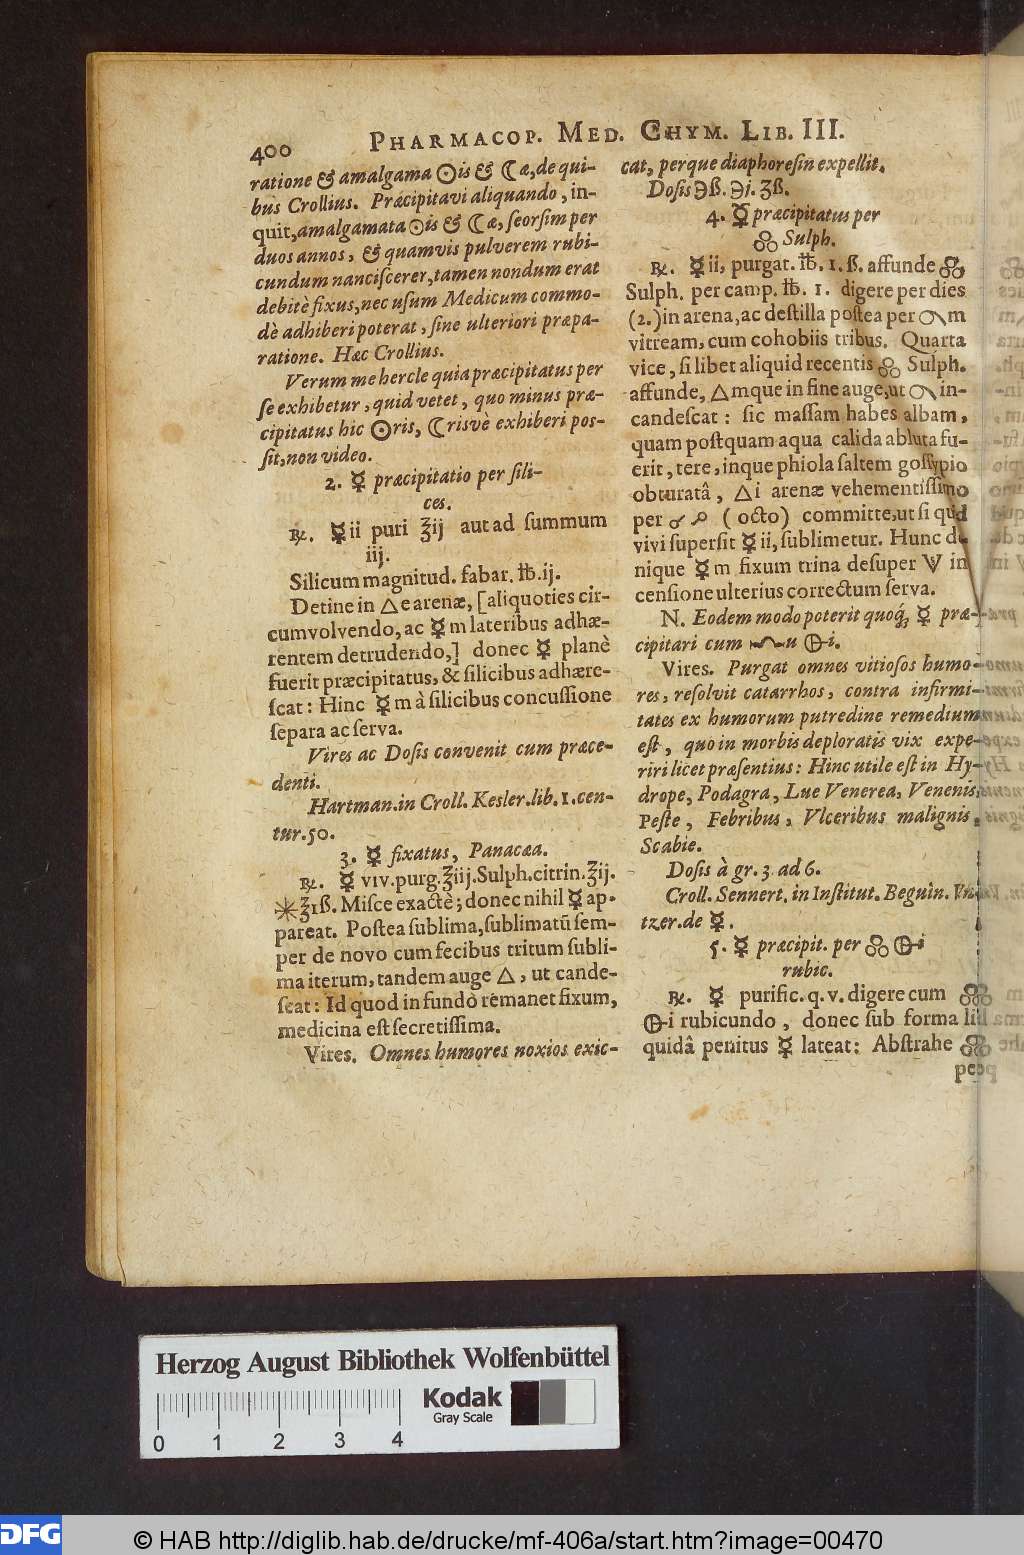 400 PHARMACOP. MED. CHYM. LIB. III.
ratione & amalgama ☉is & ☾æ, de qui-
bus Crollius. Præcipitavi aliquando, in-
quit, amalgamata ☉is & ☾æ, ſeorſim per
duos annos, & quamvis pulverem rubi-
cundum nanciſcerer, tamen nondum erat
debitè fixus, nec uſum Medicum commo-
dè adhiberi poterat, ſine ulteriori præpa-
ratione. Hæc Crollius.
Verum me hercle quia præcipitatus per
ſe exhibetur, quid vetet, quo minus præ-
cipitatus hic ☉ris, ☾risvè exhiberi poſ-
ſit, non video.
2. ☿ præcipitatio per ſili-
ces.
℞. ☿ii puri ℥ij aut ad ſummum
iij.
Silicum magnitud. fabar. ℔.ij.
Detine in △e arenæ, [aliquoties cir-
cumvolvendo, ac ☿m lateribus adhæ-
rentem detrudendo,] donec ☿ planè
fuerit præcipitatus, & ſilicibus adhære-
ſcat: Hinc ☿m à ſilicibus concuſſione
ſepara ac ſerva.
Vires ac Doſis convenit cum præce-
denti.
Hartman. in Croll. Kesler. lib. 1. cen-
tur. 50.
3. ☿ fixatus, Panacæa.
℞. ☿ viv. purg. ℥iij. Sulph. citrin. ℥ij.
✳ ℥1ß. Miſce exactè; donec nihil ☿ ap-
pareat. Poſtea ſublima, ſublimatū ſem-
per de novo cum fecibus tritum ſubli-
ma iterum, tandem auge △, ut cande-
ſcat: Id quod in fundo remanet fixum,
medicina eſt ſecretiſſima.
Vires. Omnes humores noxios exic-
cat, perque diaphoreſin expellit.
Doſis ℈ß. ℈j. ʒß.
4. ☿ præcipitatus per
Sulph.
℞. ☿ii, purgat. ℔. 1. ß. affunde
Sulph. per camp. ℔. 1. digere per dies
(2.) in arena, ac deſtilla poſtea per m
vitream, cum cohobiis tribus. Quarta
vice, ſi libet aliquid recentis Sulph.
affunde, △mque in fine auge, ut in-
candeſcat: ſic maſſam habes albam,
quam poſtquam aqua calida abluta fu-
erit, tere, inque phiola ſaltem goſſypio
obturatâ, △i arenæ vehementiſſimo
per (octo) committe, ut ſi quid
vivi ſuperſit ☿ii, ſublimetur. Hunc de
nique ☿m fixum trina deſuper in
cenſione ulterius correctum ſerva.
N. Eodem modo poterit quoq́; ☿ præ-
cipitari cum u i.
Vires. Purgat omnes vitioſos humo-
res, reſolvit catarrhos, contra infirmi-
tates ex humorum putredine remedium
eſt, quo in morbis deploratis vix expe-
riri licet præſentius: Hinc utile eſt in Hy-
drope, Podagra, Lue Venerea, Venenis,
Peſte, Febribus, Vlceribus malignis,
Scabie.
Doſis à gr. 3 ad 6.
Croll. Sennert. in Inſtitut. Beguin.
tzer. de ☿.
5. ☿ præcipit. per i
rubic.
℞. ☿ purific. q. v. digere cum
i rubicundo, donec ſub forma li
quidâ penitus ☿ lateat: Abſtrahe
Herzog August Bibliothek Wolfenbüttel
Kodak
Gray Scale
0 1 2 3 4
DFG
© HAB http://diglib.hab.de/drucke/mf-406a/start.htm?image=00470